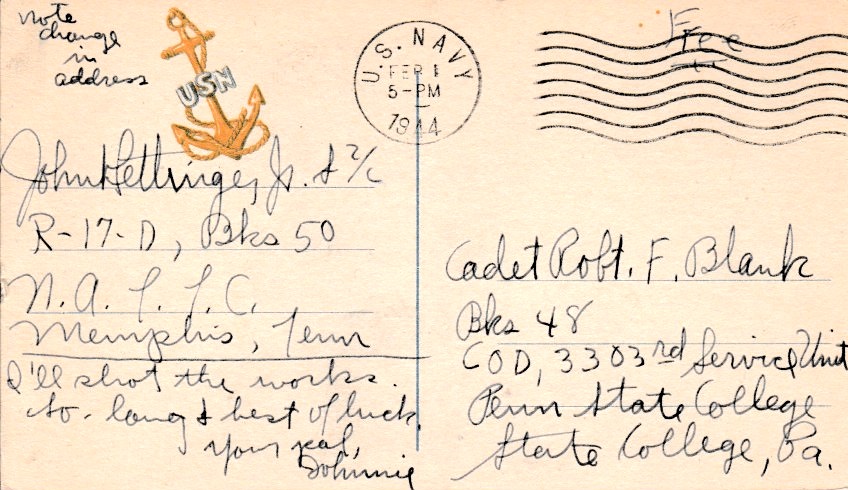 note
change
in
address
USN
U.S. NAVY
FEB 1
5-PM
1944
Free
John Hettinger, Jr. S 2/c
R-17-D, Bks 50
N.A.T.T.C.
Memphis, Tenn
I'll shot the works.
So-long & best of luck.
Your pal,
Johnnie
Cadet Robt. F. Blank
Bks 48
CoD, 3303rd Service Unit
Penn State College
State College, Pa.